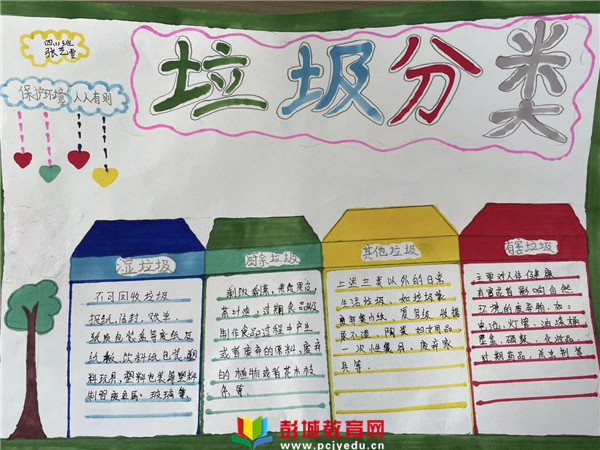 四(1)班
张艺
保护环境 人人有则
垃圾分类
湿垃圾
不可回收垃圾
报纸、信封、
纸质包装盒等废纸及
纸板、饮料纸包装、塑
料玩具、塑料包装等塑料
制品废金属、玻璃等。
厨余垃圾
剩饭剩菜、
茶叶渣、过期食品以及
制作食品过程中产生
或者废弃的原料、废弃
的植物或者花木枝
条等。
其他垃圾
上述三类以外的日常
生活垃圾,如垃圾袋
一次性餐具、废弃家
具等。
有害垃圾
主要对人体健康
有害或者影响自然
环境的废弃物,如:
电池、灯管、油漆桶
过期药品、杀虫剂等
彭城教育网
www.pcjyedu.cn